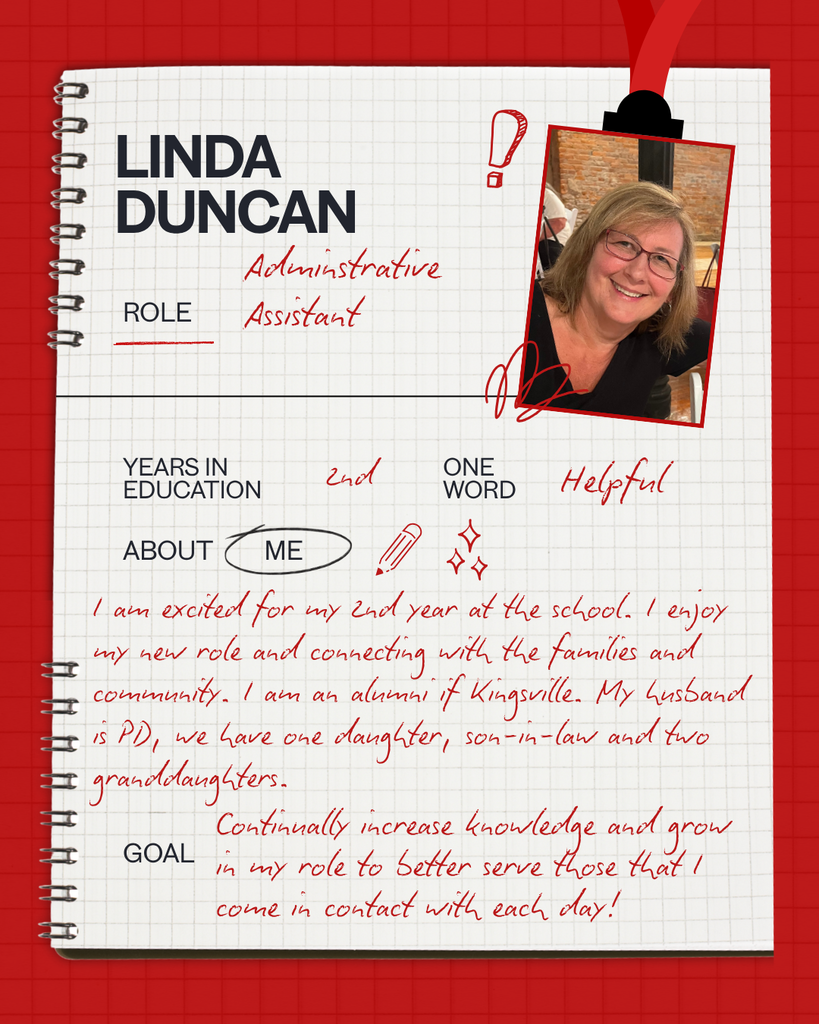 LINDA
DUNCAN
Adminstrative
ROLE Assistant
YEARS IN
EDUCATION
2nd
ONE
WORD
Helpful
ABOUT ME
I am excited for my 2nd year at the school. I enjoy
my new role and connecting with the families and
community. I am an alumni if Kingsville. My husband
is PD, we have one daughter, son-in-law and two
granddaughters.
GOAL
Continually increase knowledge and grow
in my role to better serve those that I
come in contact with each day!